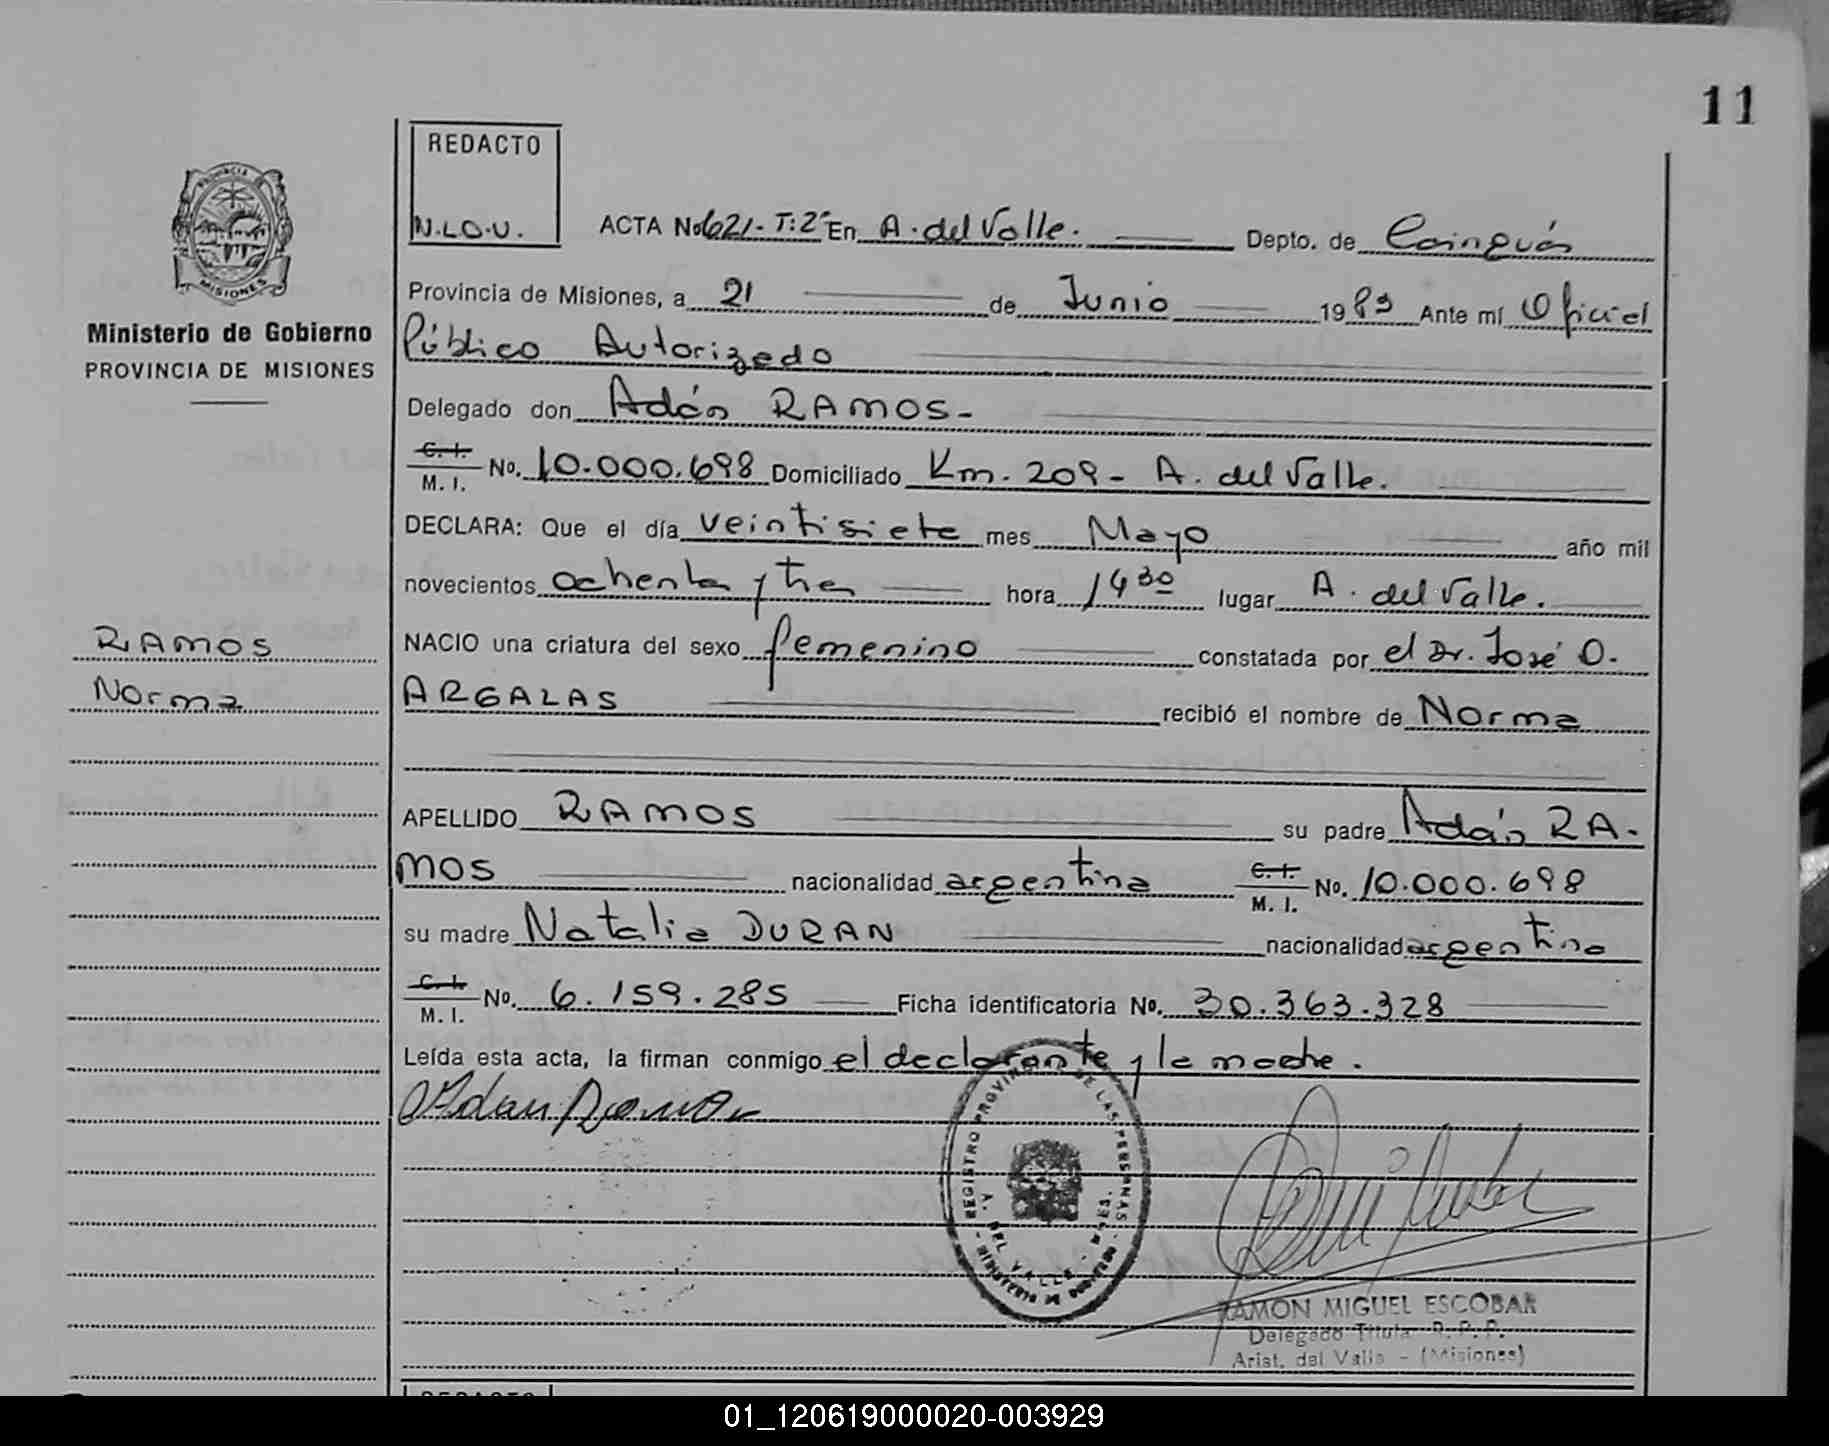 11
REDACTO
N.L.O.U.
ACTA No 621- T:2º En A. del Valle. Depto. de Cainguás
Provincia de Misiones, a 21 de Junio 1983 Ante mí Oficial
Público Autorizado
Delegado don Adán RAMOS-
C. I. M. I. No. 10.000.698 Domiciliado Km. 209- A. del Valle.
DECLARA: Que el día veintisiete mes Mayo año mil
novecientos ochenta y tres hora 14 30 lugar A. del Valle.
NACIO una criatura del sexo femenino constatada por el Dr. José O.
ARGALAS recibió el nombre de Norma
APELLIDO RAMOS su padre Adán RA-
MOS nacionalidad argentina C. I. M. I. No. 10.000.698
su madre Natalia DURAN nacionalidad argentina
C. I. M. I. No. 6.159.285 Ficha identificatoria No. 30.363.328
Leída esta acta, la firman conmigo el declarante y la madre.
Adan Ramos
REGISTRO PROVINCIAL DE LAS PERSONAS - MINISTERIO DE GOBIERNO
A. DEL VALLE - MNES.
RAMON MIGUEL ESCOBAR
Delegado Titular R. P. P.
Arist. del Valle - (Misiones)
PROVINCIA DE
MISIONES
Ministerio de Gobierno
PROVINCIA DE MISIONES
RAMOS
Norma
REDACTO
01_120619000020-003929